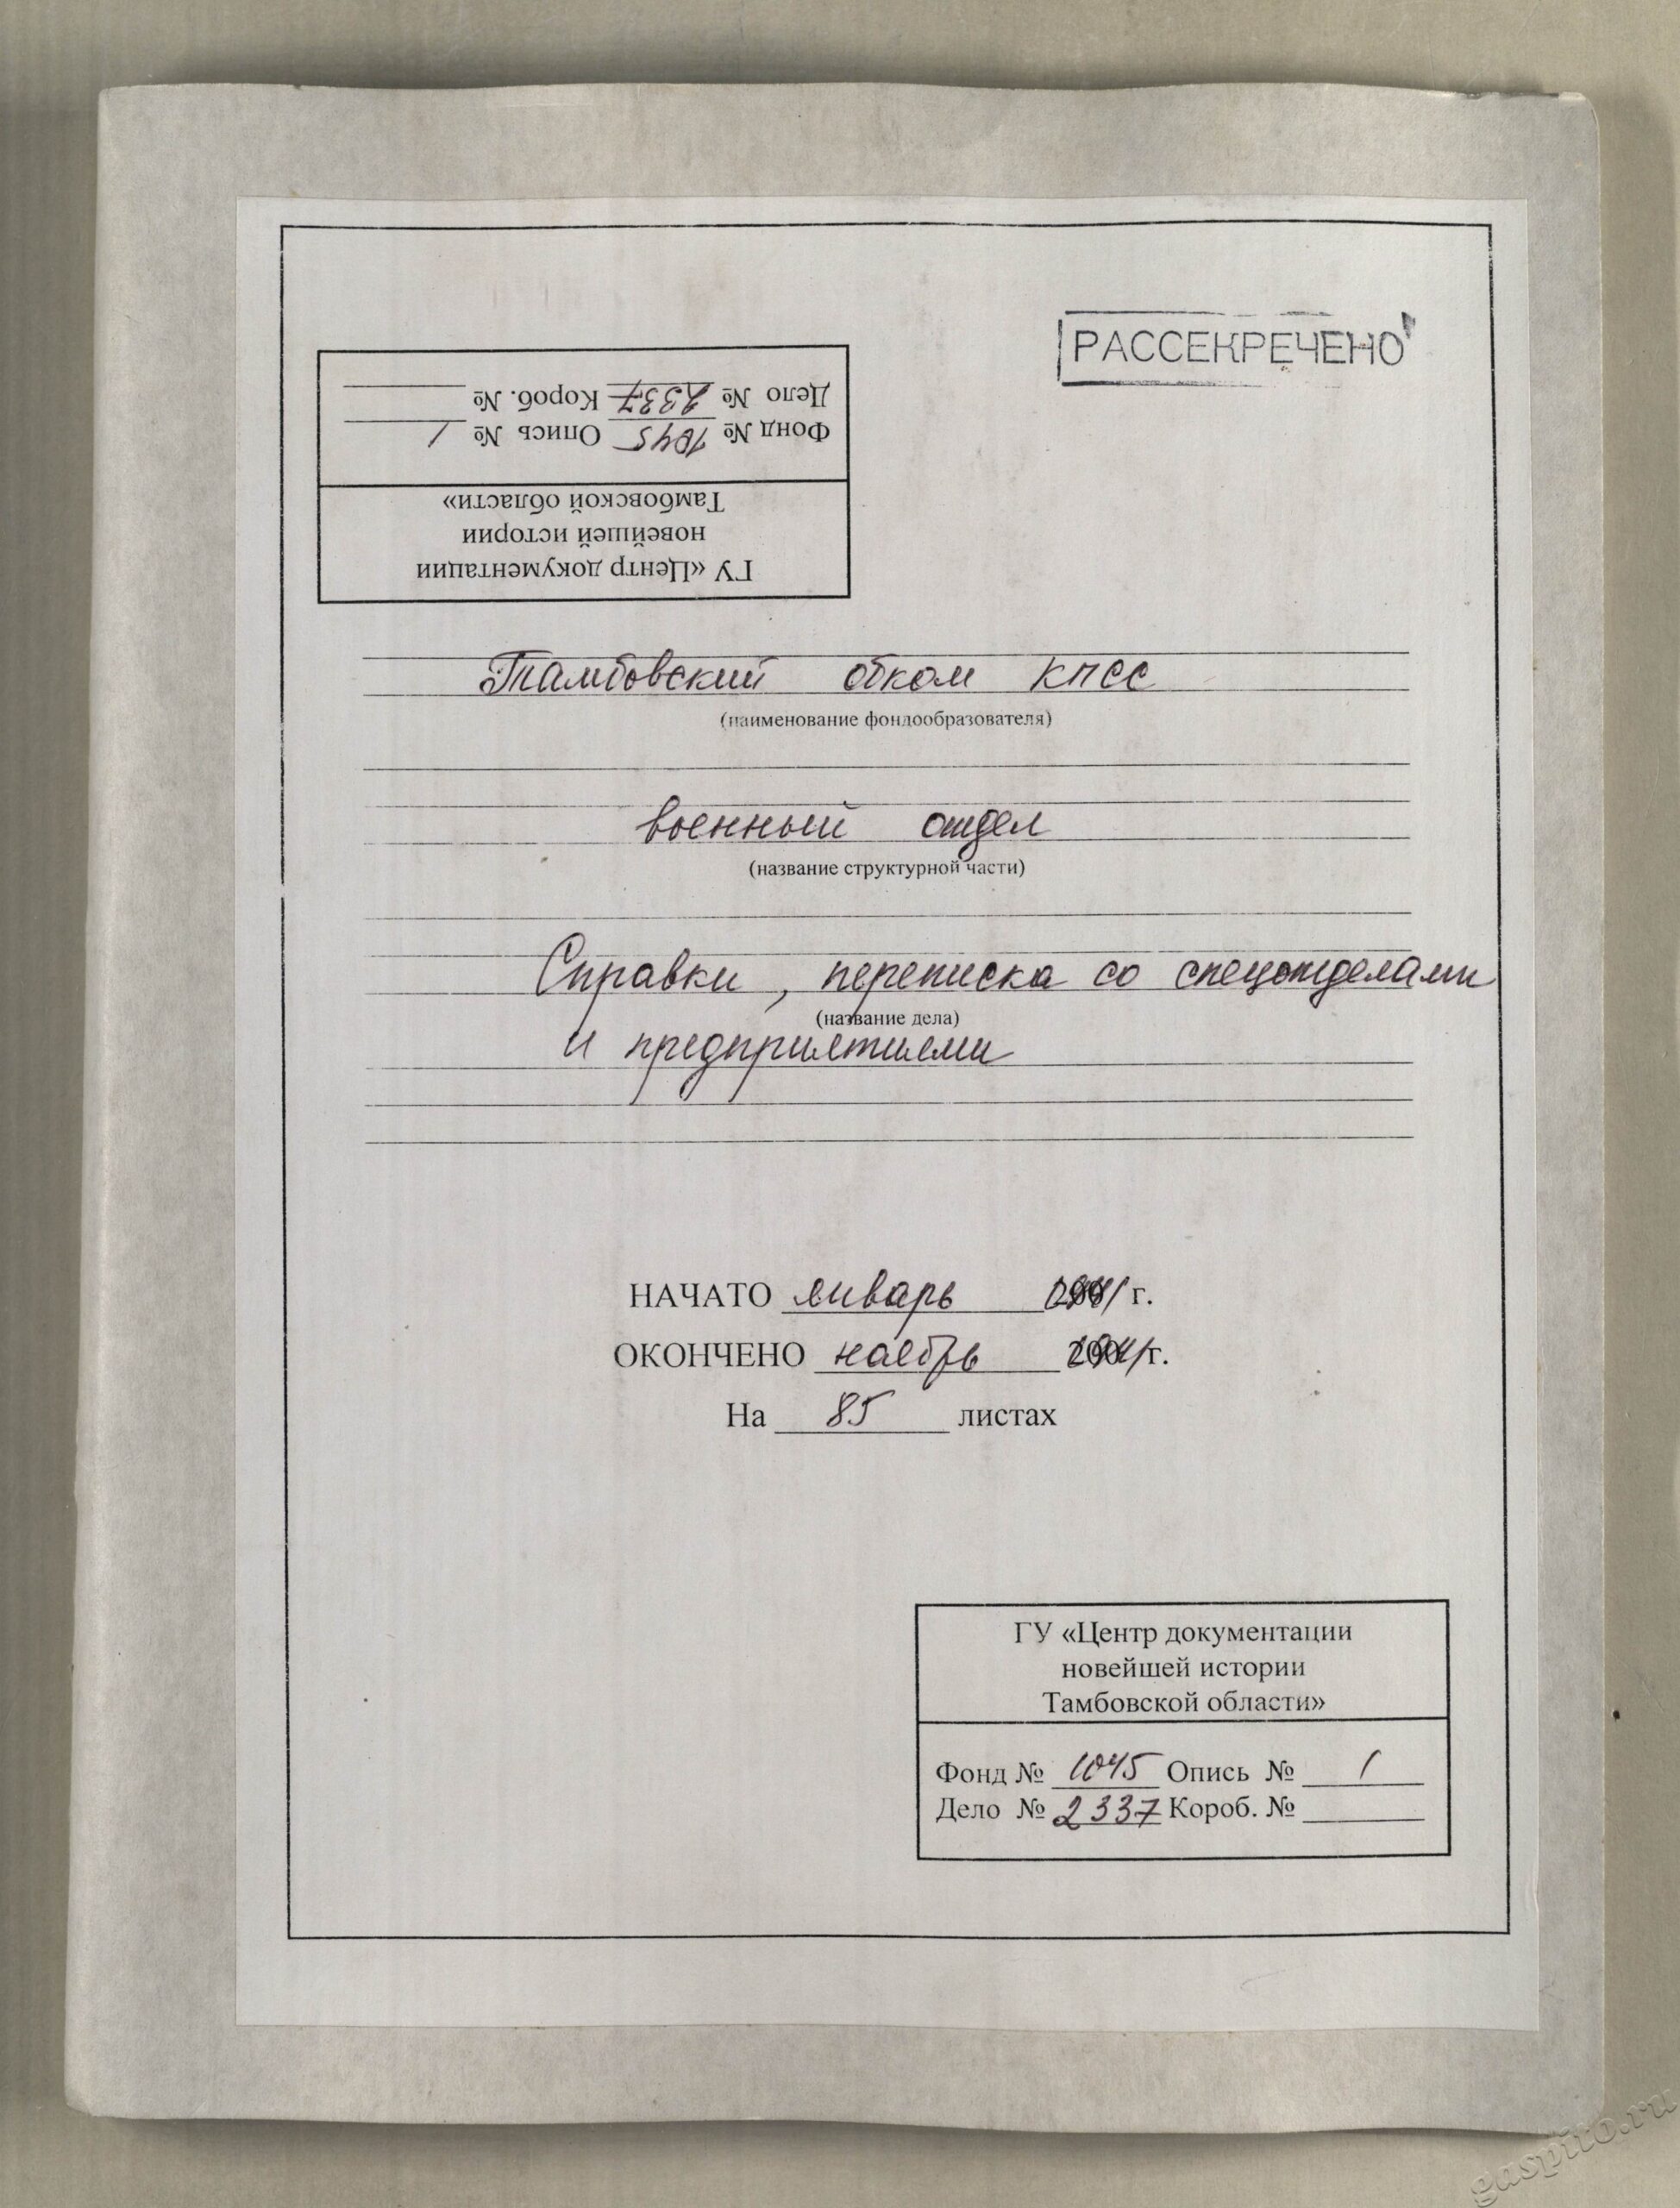 РАССЕКРЕЧЕНО
Дело № 2337 Короб. №
Фонд № 1045 Опись № 1
Тамбовской области»
новейшей истории
ГУ «Центр документации
Тамбовский обком КПСС
(наименование фондообразователя)
военный отдел
(название структурной части)
Справки, переписка со спецотделами
(название дела)
и предприятиями
НАЧАТО январь г.
ОКОНЧЕНО ноябрь г.
На 85 листах
ГУ «Центр документации
новейшей истории
Тамбовской области»
Фонд № 1045 Опись № 1
Дело № 2337 Короб. №
gaspito.ru